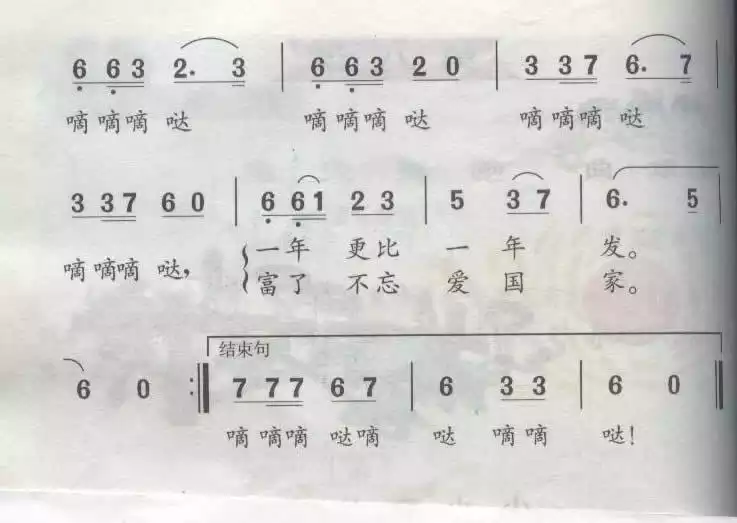 6 6 3 2. 3 | 6 6 3 2 0 | 3 3 7 6. 7 |
嘀嘀嘀 哒 嘀嘀嘀 哒 嘀嘀嘀 哒
3 3 7 6 0 | 6 6 1 2 3 | 5 3 7 | 6. 5
嘀嘀嘀 哒, 一年 更比 一 年 发。
富了 不忘 爱 国 家。
结束句
6 0 :‖ 7 7 7 6 7 | 6 3 3 | 6 0 ‖
嘀嘀嘀 哒嘀 哒 嘀嘀 哒!